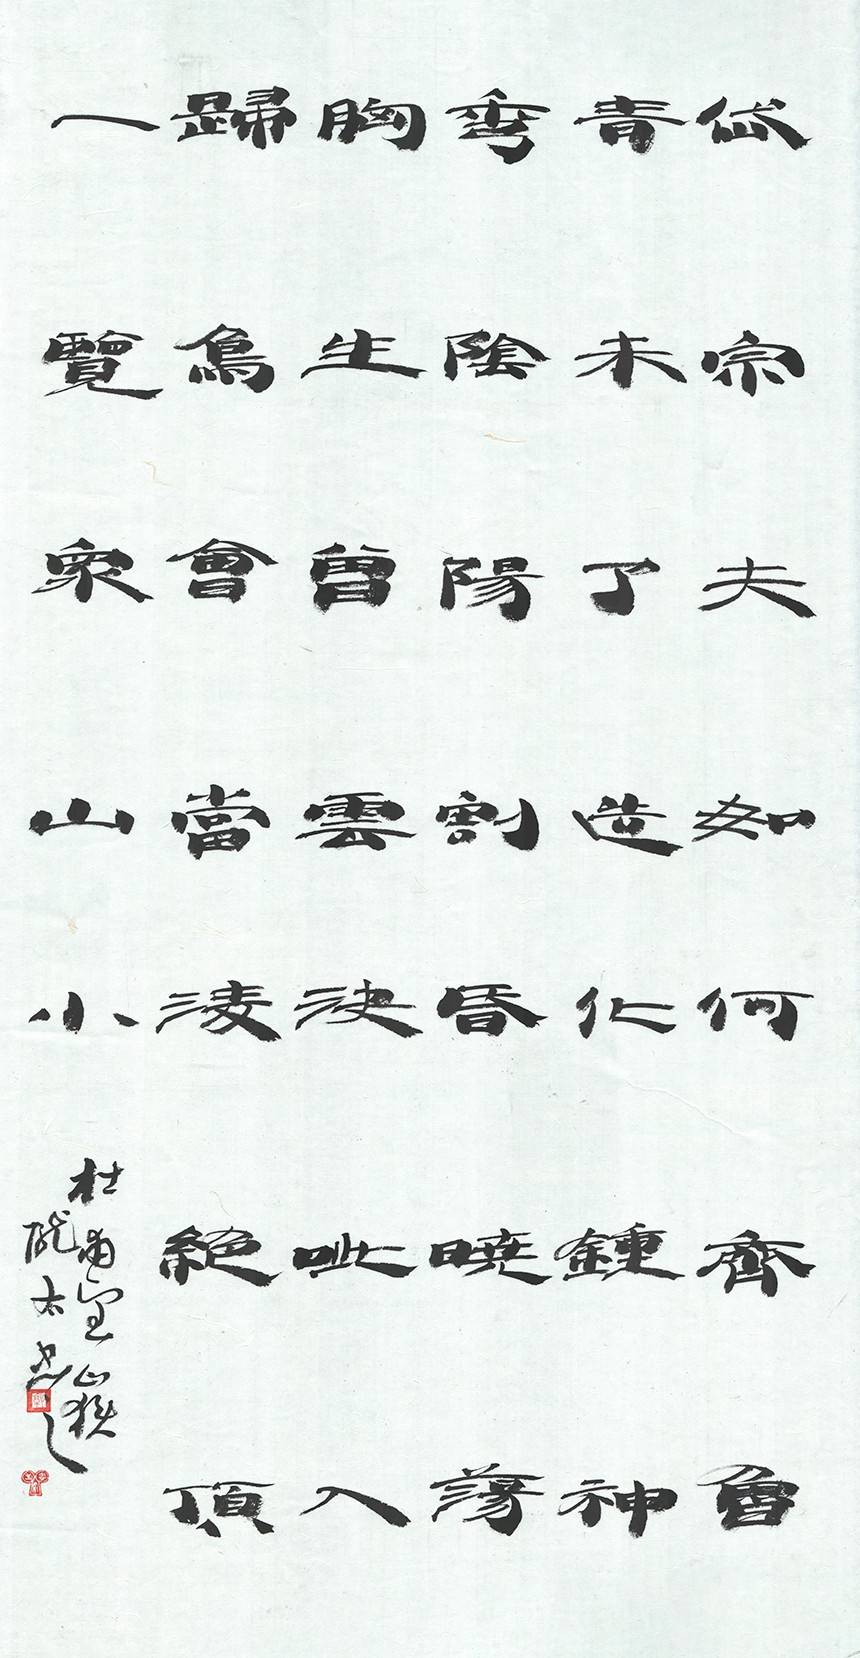 岱宗夫如何齊魯
青未了造化鍾神
秀陰陽割昏曉蕩
胸生曾雲決眦入
歸鳥會當淩絕頂
一覽衆山小
杜甫望嶽